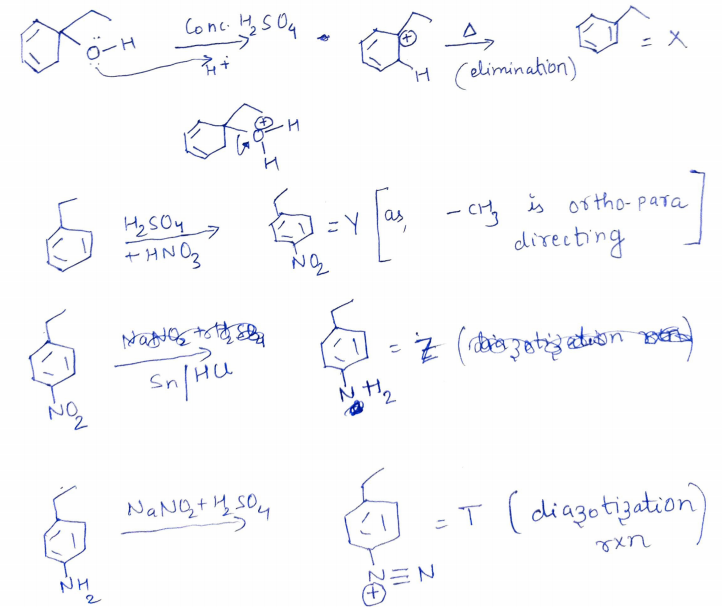 Ö-H
Conc. H2SO4
H+
⊕
H
Δ
(elimination)
= X
⊕
O-H
H
H2SO4
+ HNO3
NO2
= Y [as, -CH3 is ortho-para
directing]
NO2
Sn/HCl
NH2
= Z
NH2
NaNO2 + H2SO4
N≡N
⊕
= T (diazotization)
rxn